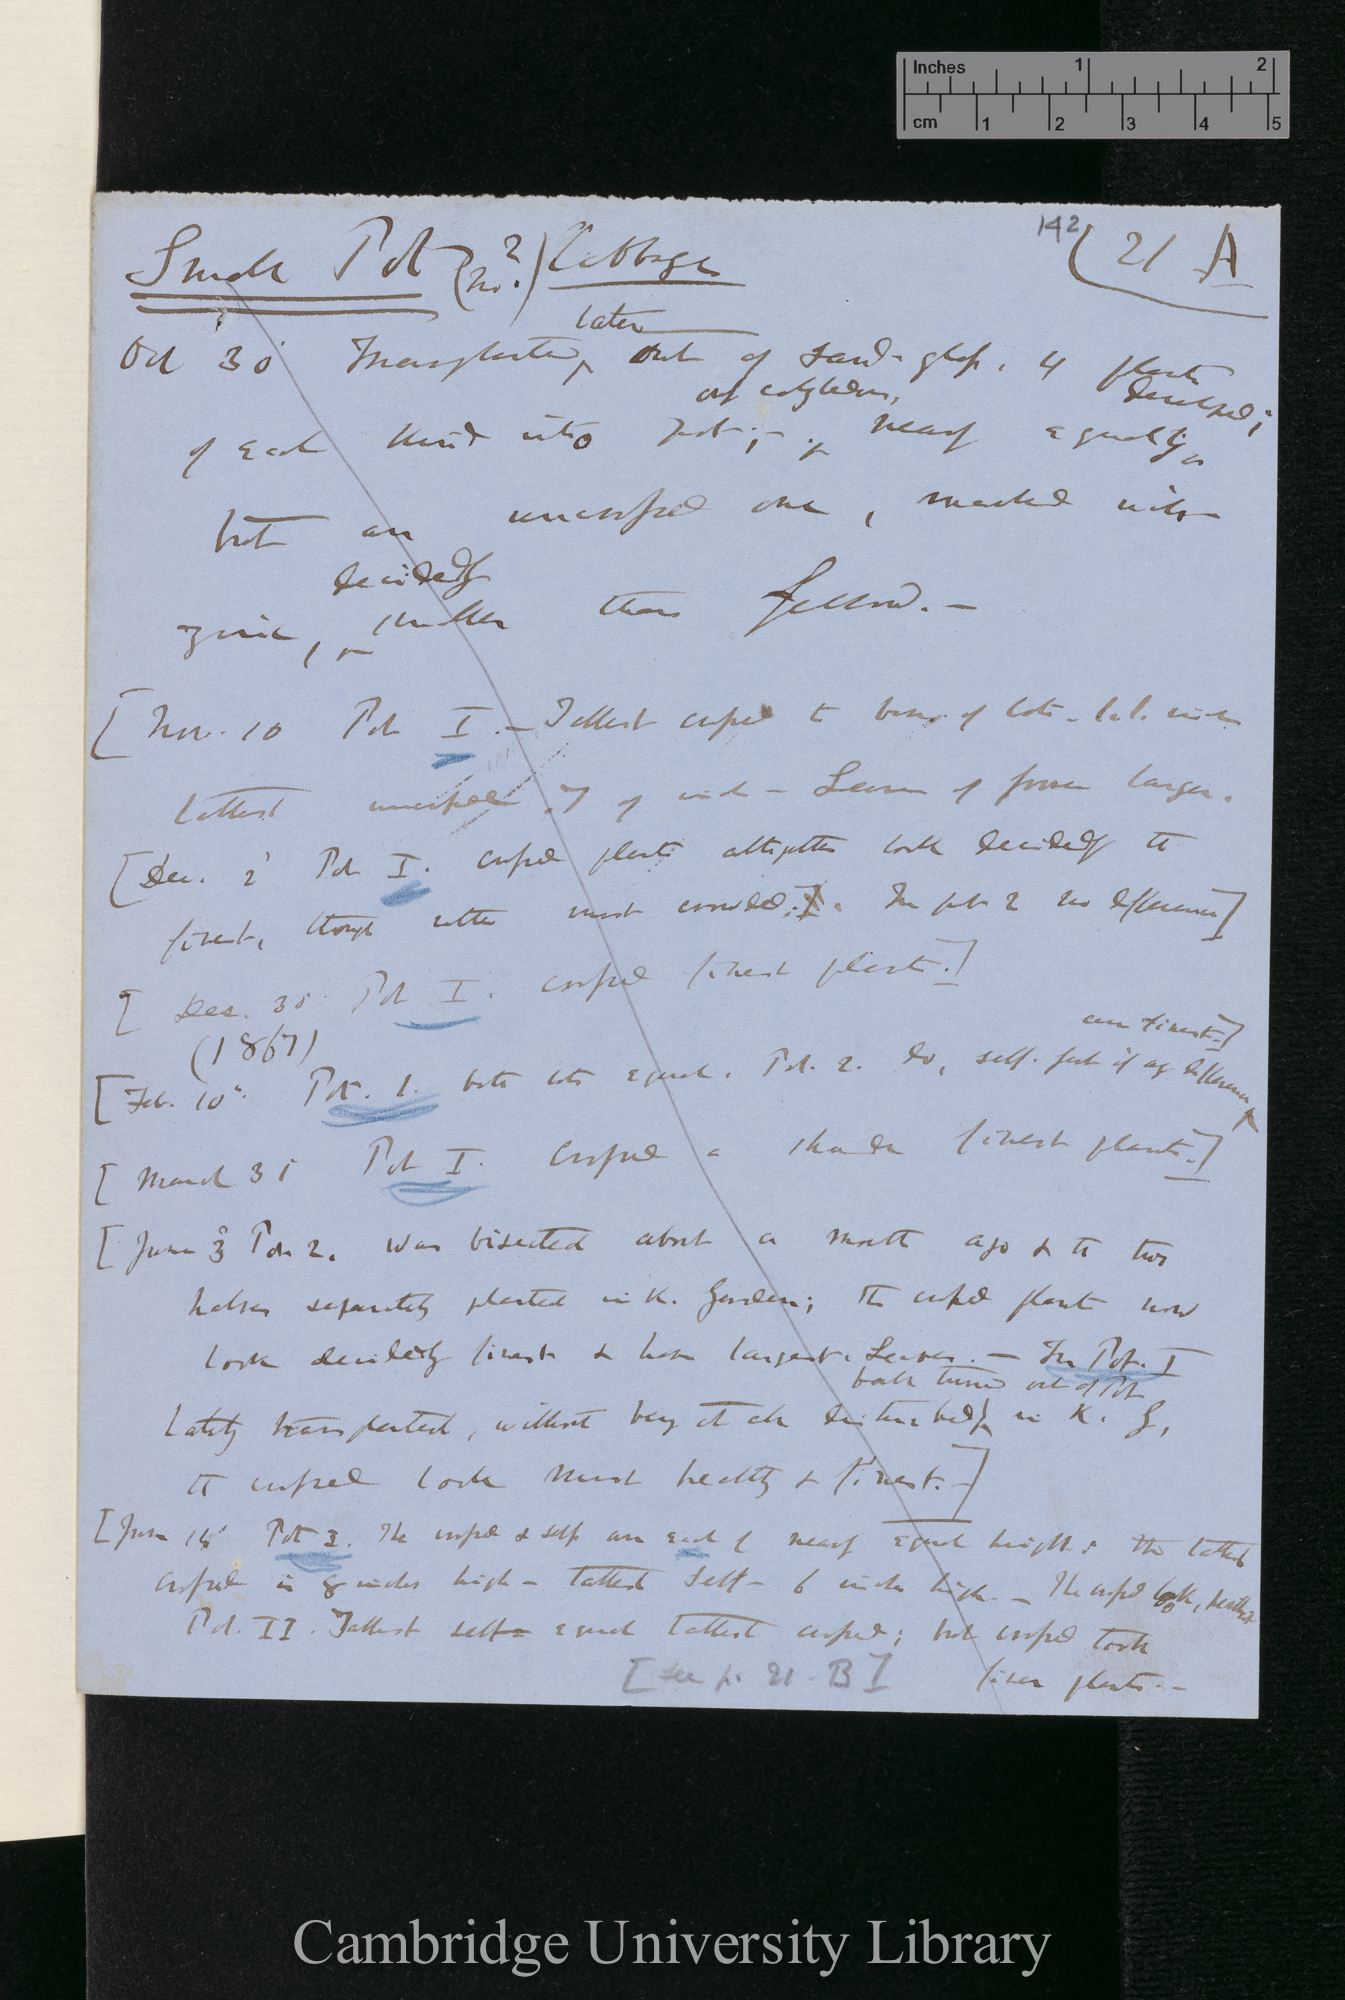 Inches 1 2
cm 1 2 3 4 5
142
(21 A
Small Pot (no. 2) Cabbages
later
Oct 30 Transplanted, out of sand-glass. 4 plants
only cotyledons, developed;
of each kind into pot; nearly equally
but an uncrossed one, marked with
decidedly
zinc, smaller than fellow.—
[Nov. 10 Pot I.— Tallest crossed to base of cots. inch
tallest uncrossed .7 of inch — Leaves of former larger.
[Dec. 2 Pot I. crossed plants altogether look decidedly the
finest, though rather most crowded. In pot 2 no difference]
[Dec. 30 Pot I. crossed finest plants.]
(1867)
are finest.]
[Feb. 10th. Pot. I. both lots equal. Pot. 2. do, self. just if any difference
[March 31 Pot I. Crossed a shade finest plants.]
[June 3 Pot 2. was bisected about a month ago & the two
halves separately planted in K. Garden; the crossed plants now
look decidedly finest & have largest leaves.— In Pot. I
both turned out of Pot
lately transplanted, without being at all disturbed in K. G,
the crossed look most healthy & finest.—]
[June 14 Pot I. The crossed & self are each of nearly equal height: the tallest
crossed is 8 inches high — tallest self — 6 inches high.— The crossed look, healthiest
Pot. II. Tallest self = equal tallest crossed; but crossed look
finer plants.—
[See p. 21. B]
Cambridge University Library